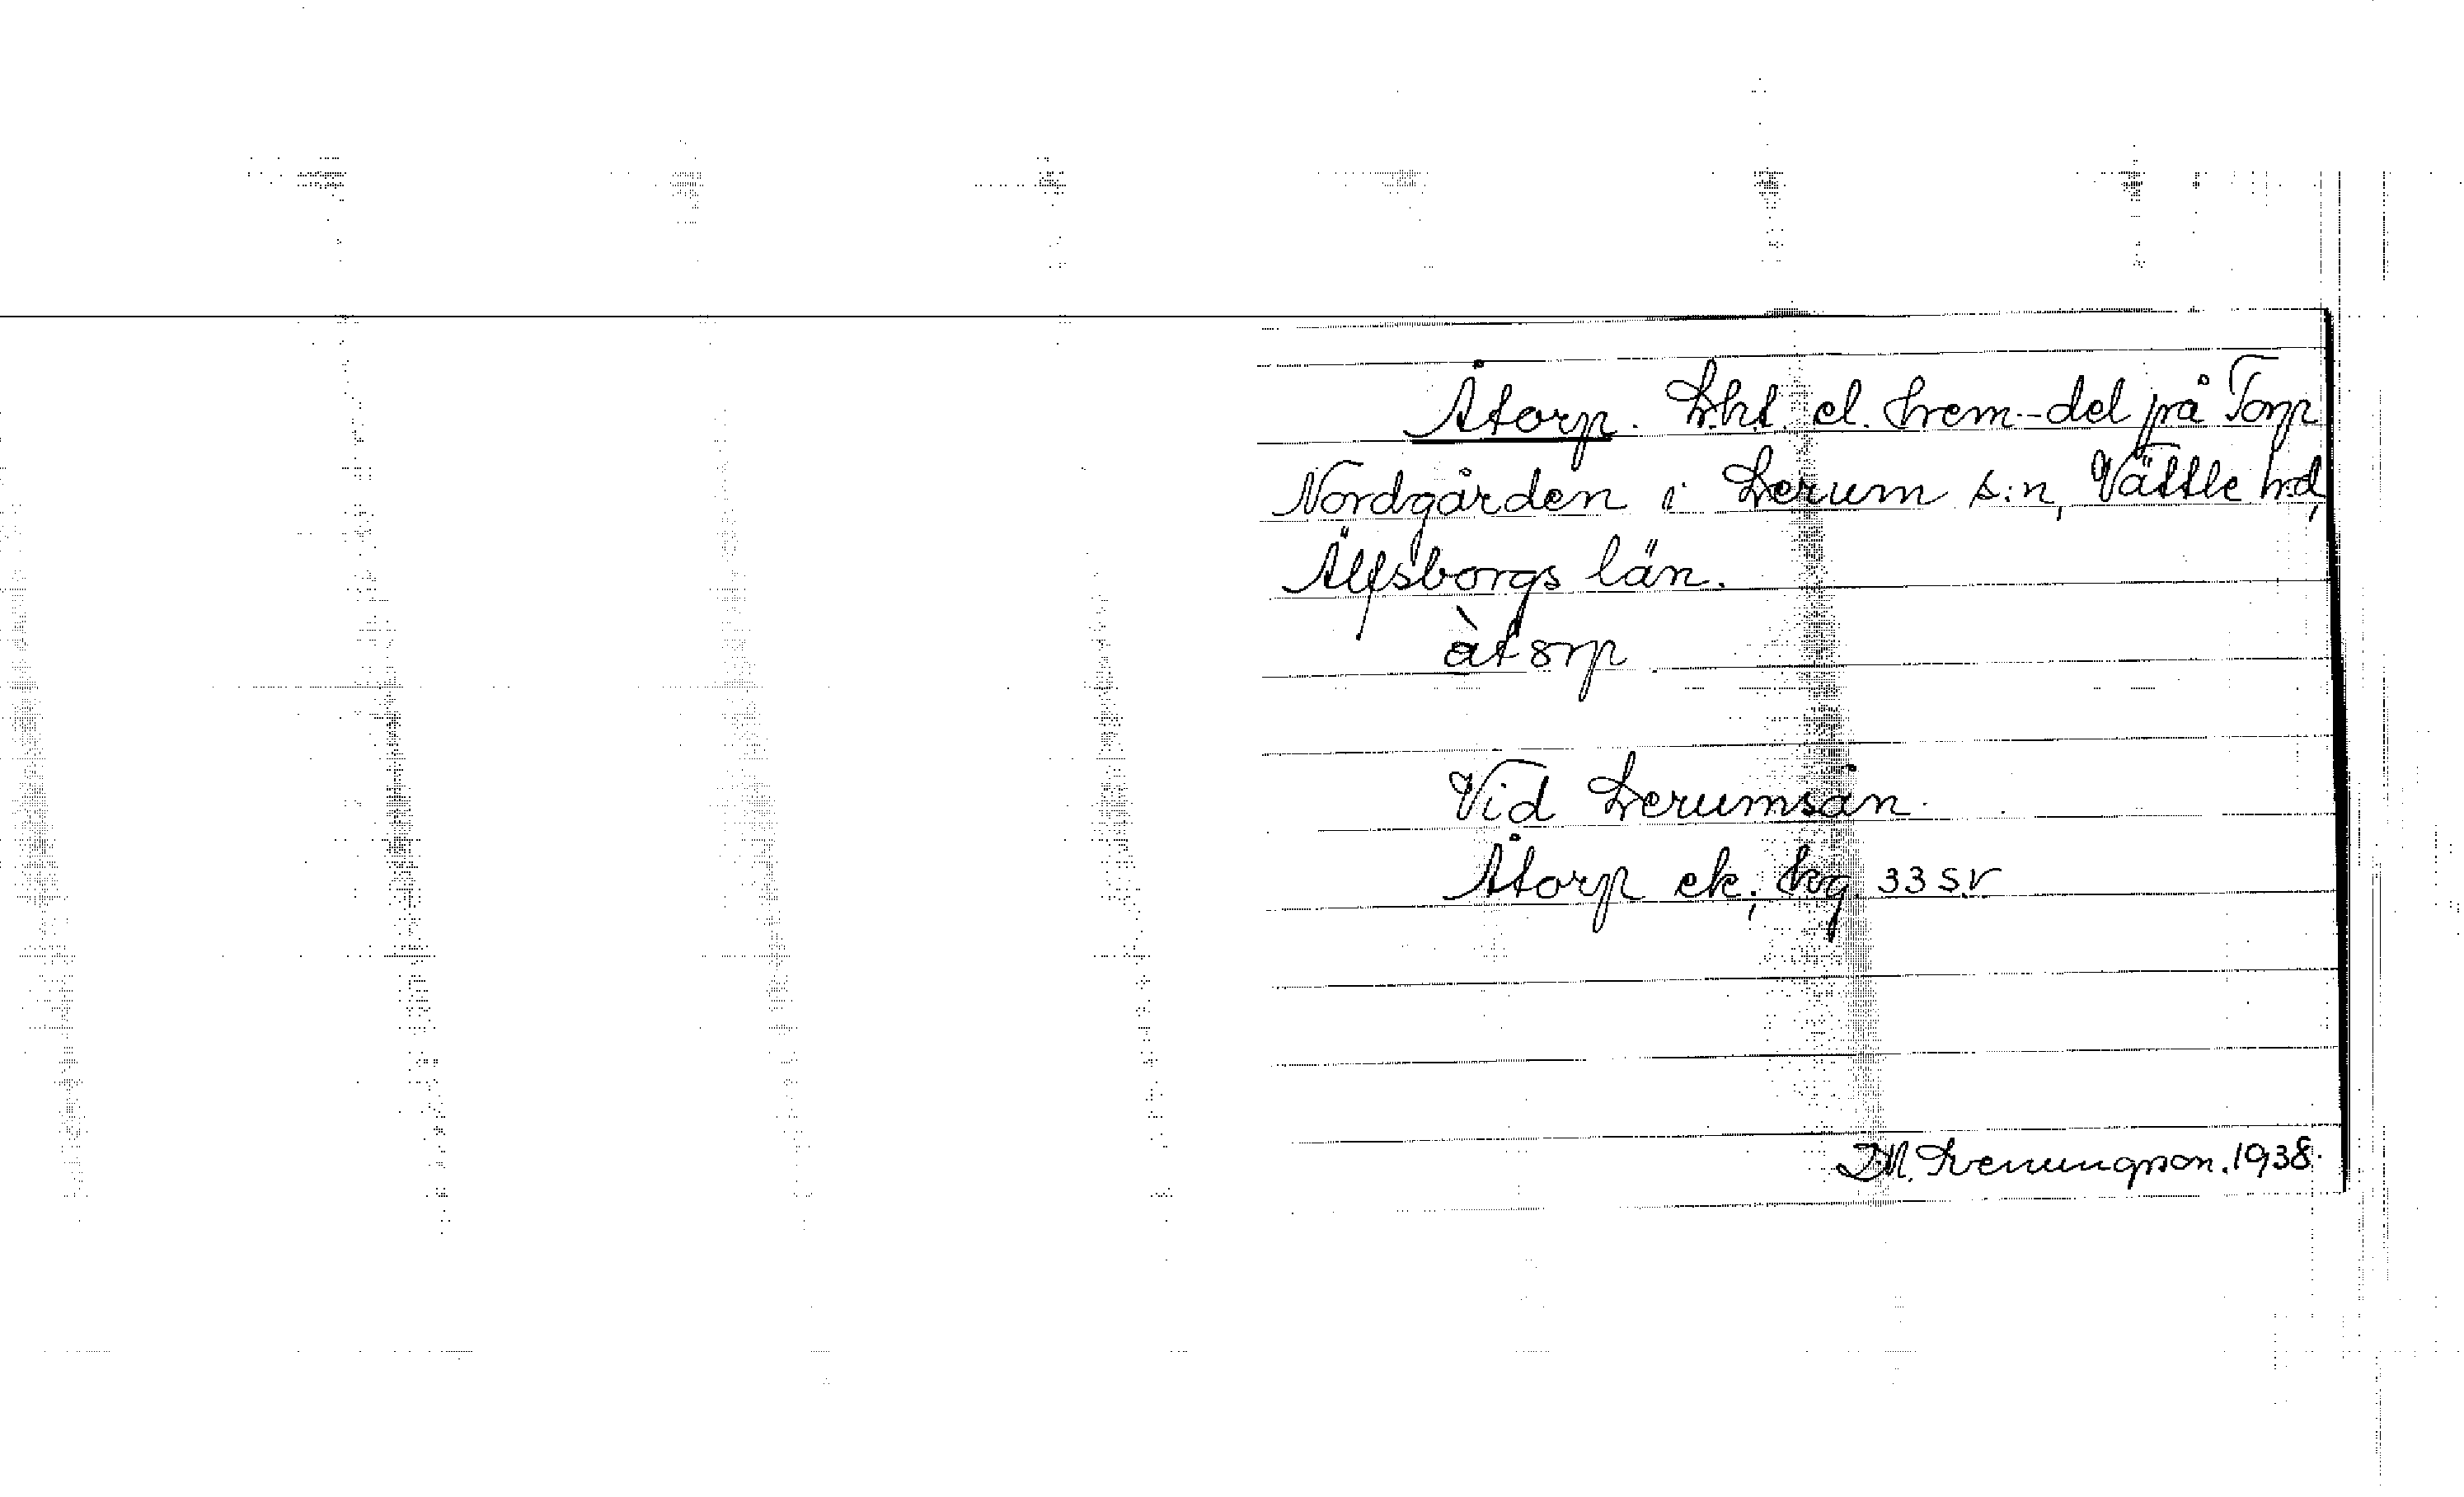 Åtorp. Lht. el. hem-del på Torp
Nordgården i Lerum s:n, Vättle hd,
Älfsborgs län.
àtorp
Vid Lerumsån.
Åtorp ek.; kg. 33 SV
1938.